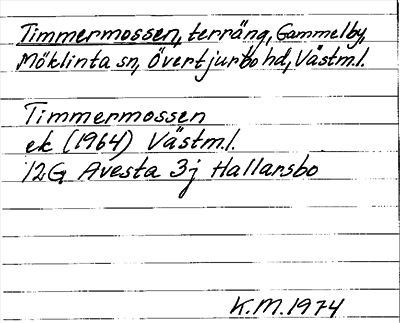 Timmermossen, terräng, Gammelby,
Möklinta sn, Övertjurbo hd, Västml.
Timmermossen
ek (1964) Västml.
12G Avesta 3j Hallarsbo
K.M. 1974